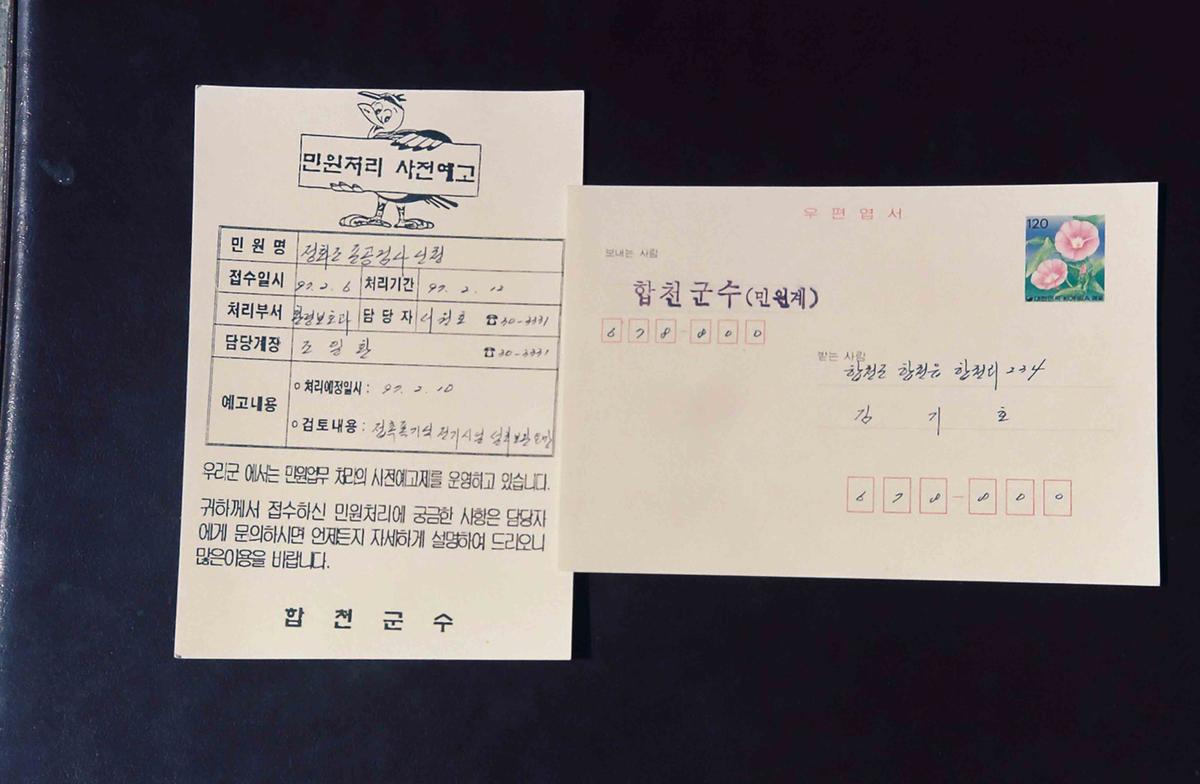 민원처리 사전예고
민원명 정화조 준공검사 신청
접수일시 97. 2. 6 처리기간 97. 2. 12
처리부서 환경보호과 담당자 서원호 ☎30-3331
담당계장 조임환 ☎30-3331
예고내용
o 처리예정일시 : 97. 2. 10
o 검토내용 : 접촉폭기식 전기시설
우리군 에서는 민원업무 처리의 사전예고제를 운영하고 있습니다.
귀하께서 접수하신 민원처리에 궁금한 사항은 담당자
에게 문의하시면 언제든지 자세하게 설명하여 드리오니
많은이용을 바랍니다.
합천군수
우편엽서
120
대한민국 KOREA 우표
보내는 사람
합천군수(민원계)
678-800
받는 사람
합천군 합천읍 합천리 234
김기호
678-800